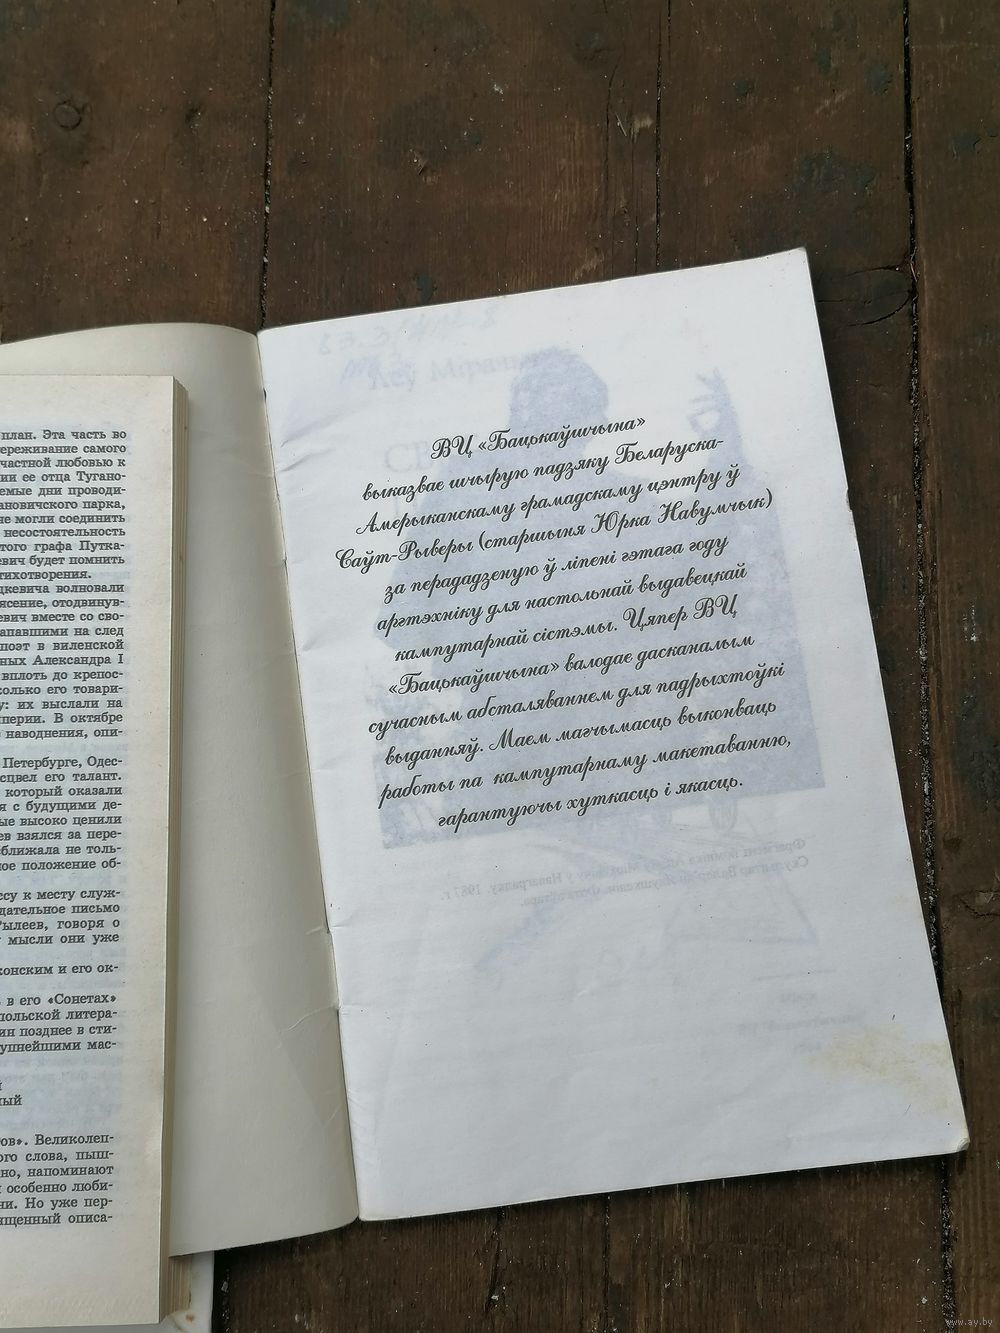 план. Эта часть во
тереживание самого
счастной любовью к
ии ее отца Тугано-
емые дни проводи-
ановичского парка,
не могли соединить
несостоятельность
того графа Путка-
евич будет помнить
тихотворения.
цкевича волновали
ясение, отодвинув-
евич вместе со сво-
апавшими на след
поэт в виленской
ных Александра I
вплоть до крепос-
колько его товари-
у: их выслали на
перии. В октябре
наводнения, опи-
Петербурге, Одес-
сцвел его талант.
который оказали
я с будущими де-
ые высоко ценили
ев взялся за пере-
сближала не толь-
ное положение об-
ссу к месту служ-
дательное письмо
Рылеев, говоря о
мысли они уже
конским и его ок-
в его «Сонетах»
польской литера-
ин позднее в сти-
упнейшими мас-
й
ный
ов». Великолеп-
ого слова, пыш-
но, напоминают
особенно люби-
ни. Но уже пер-
ященный описа-
ВЦ «Бацькаўшчына»
выказвае шчырую падзяку Беларуска-
Амерыканскаму грамадскаму цэнтру ў
Саўт-Рыверы (старшыня Юрка Навумчык)
за перададзеную ў ліпені гэтага году
аргтэхніку для настольнай выдавецкай
кампутарнай сістэмы. Цяпер ВЦ
«Бацькаўшчына» валодае дасканалым
сучасным абсталяваннем для падрыхтоўкі
выданняў. Маем магчымасць выконваць
работы па кампутарнаму макетаванню,
гарантуючы хуткасць і якасць.
www.ay.by